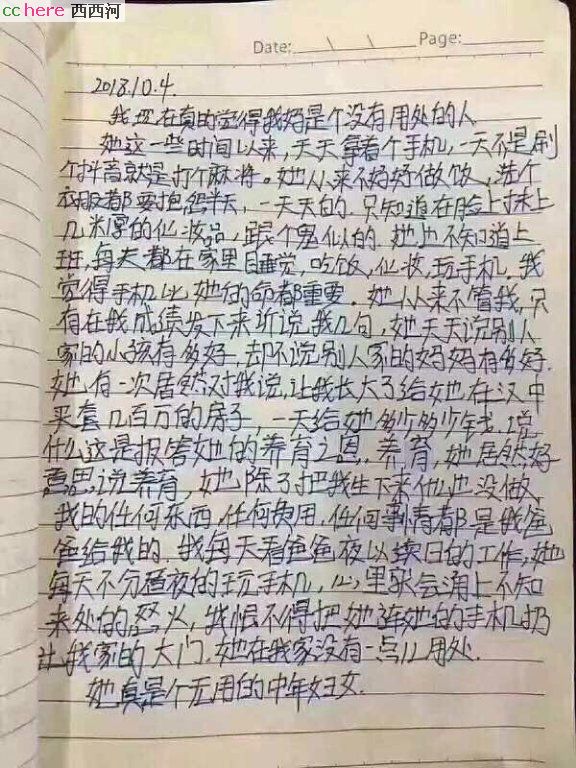 cchere 西西河
Date: \ \ Page:
2018.10.4.
我现在真的觉得我妈是个没有用处的人
她这一些时间以来,天天拿着个手机,一天不是刷
个抖音就是打个麻将。她从来不好好做饭,洗个
衣服都要抱怨半天,一天天的.只知道在脸上抹上
几米厚的化妆品,跟个鬼似的.她也不知道上
班,每天都在家里睡觉,吃饭,化妆,玩手机,我
觉得手机比她的命都重要。她从来不管我,只
有在我成绩发下来听说我几句,她天天说别人
家的小孩有多好,却不说别人家的妈妈有多好.
她有一次居然对我说,让我长大了给她在汉中
买套几百万的房子,一天给她多少多少钱.说
什么这是报答她的养育之恩.养育,她居然好
意思说养育,她除了把我生下来他也没做、
我的任何东西,任何费用,任何事情都是我爸
爸给我的.我每天看爸爸夜以续日的工作,她
每天不分昼夜的玩手机,心里就会涌上不知
来处的怒火,我恨不得把她连她的手机扔
出我家的大门,她在我家没有一点儿用处.
她真是个无用的中年妇女.